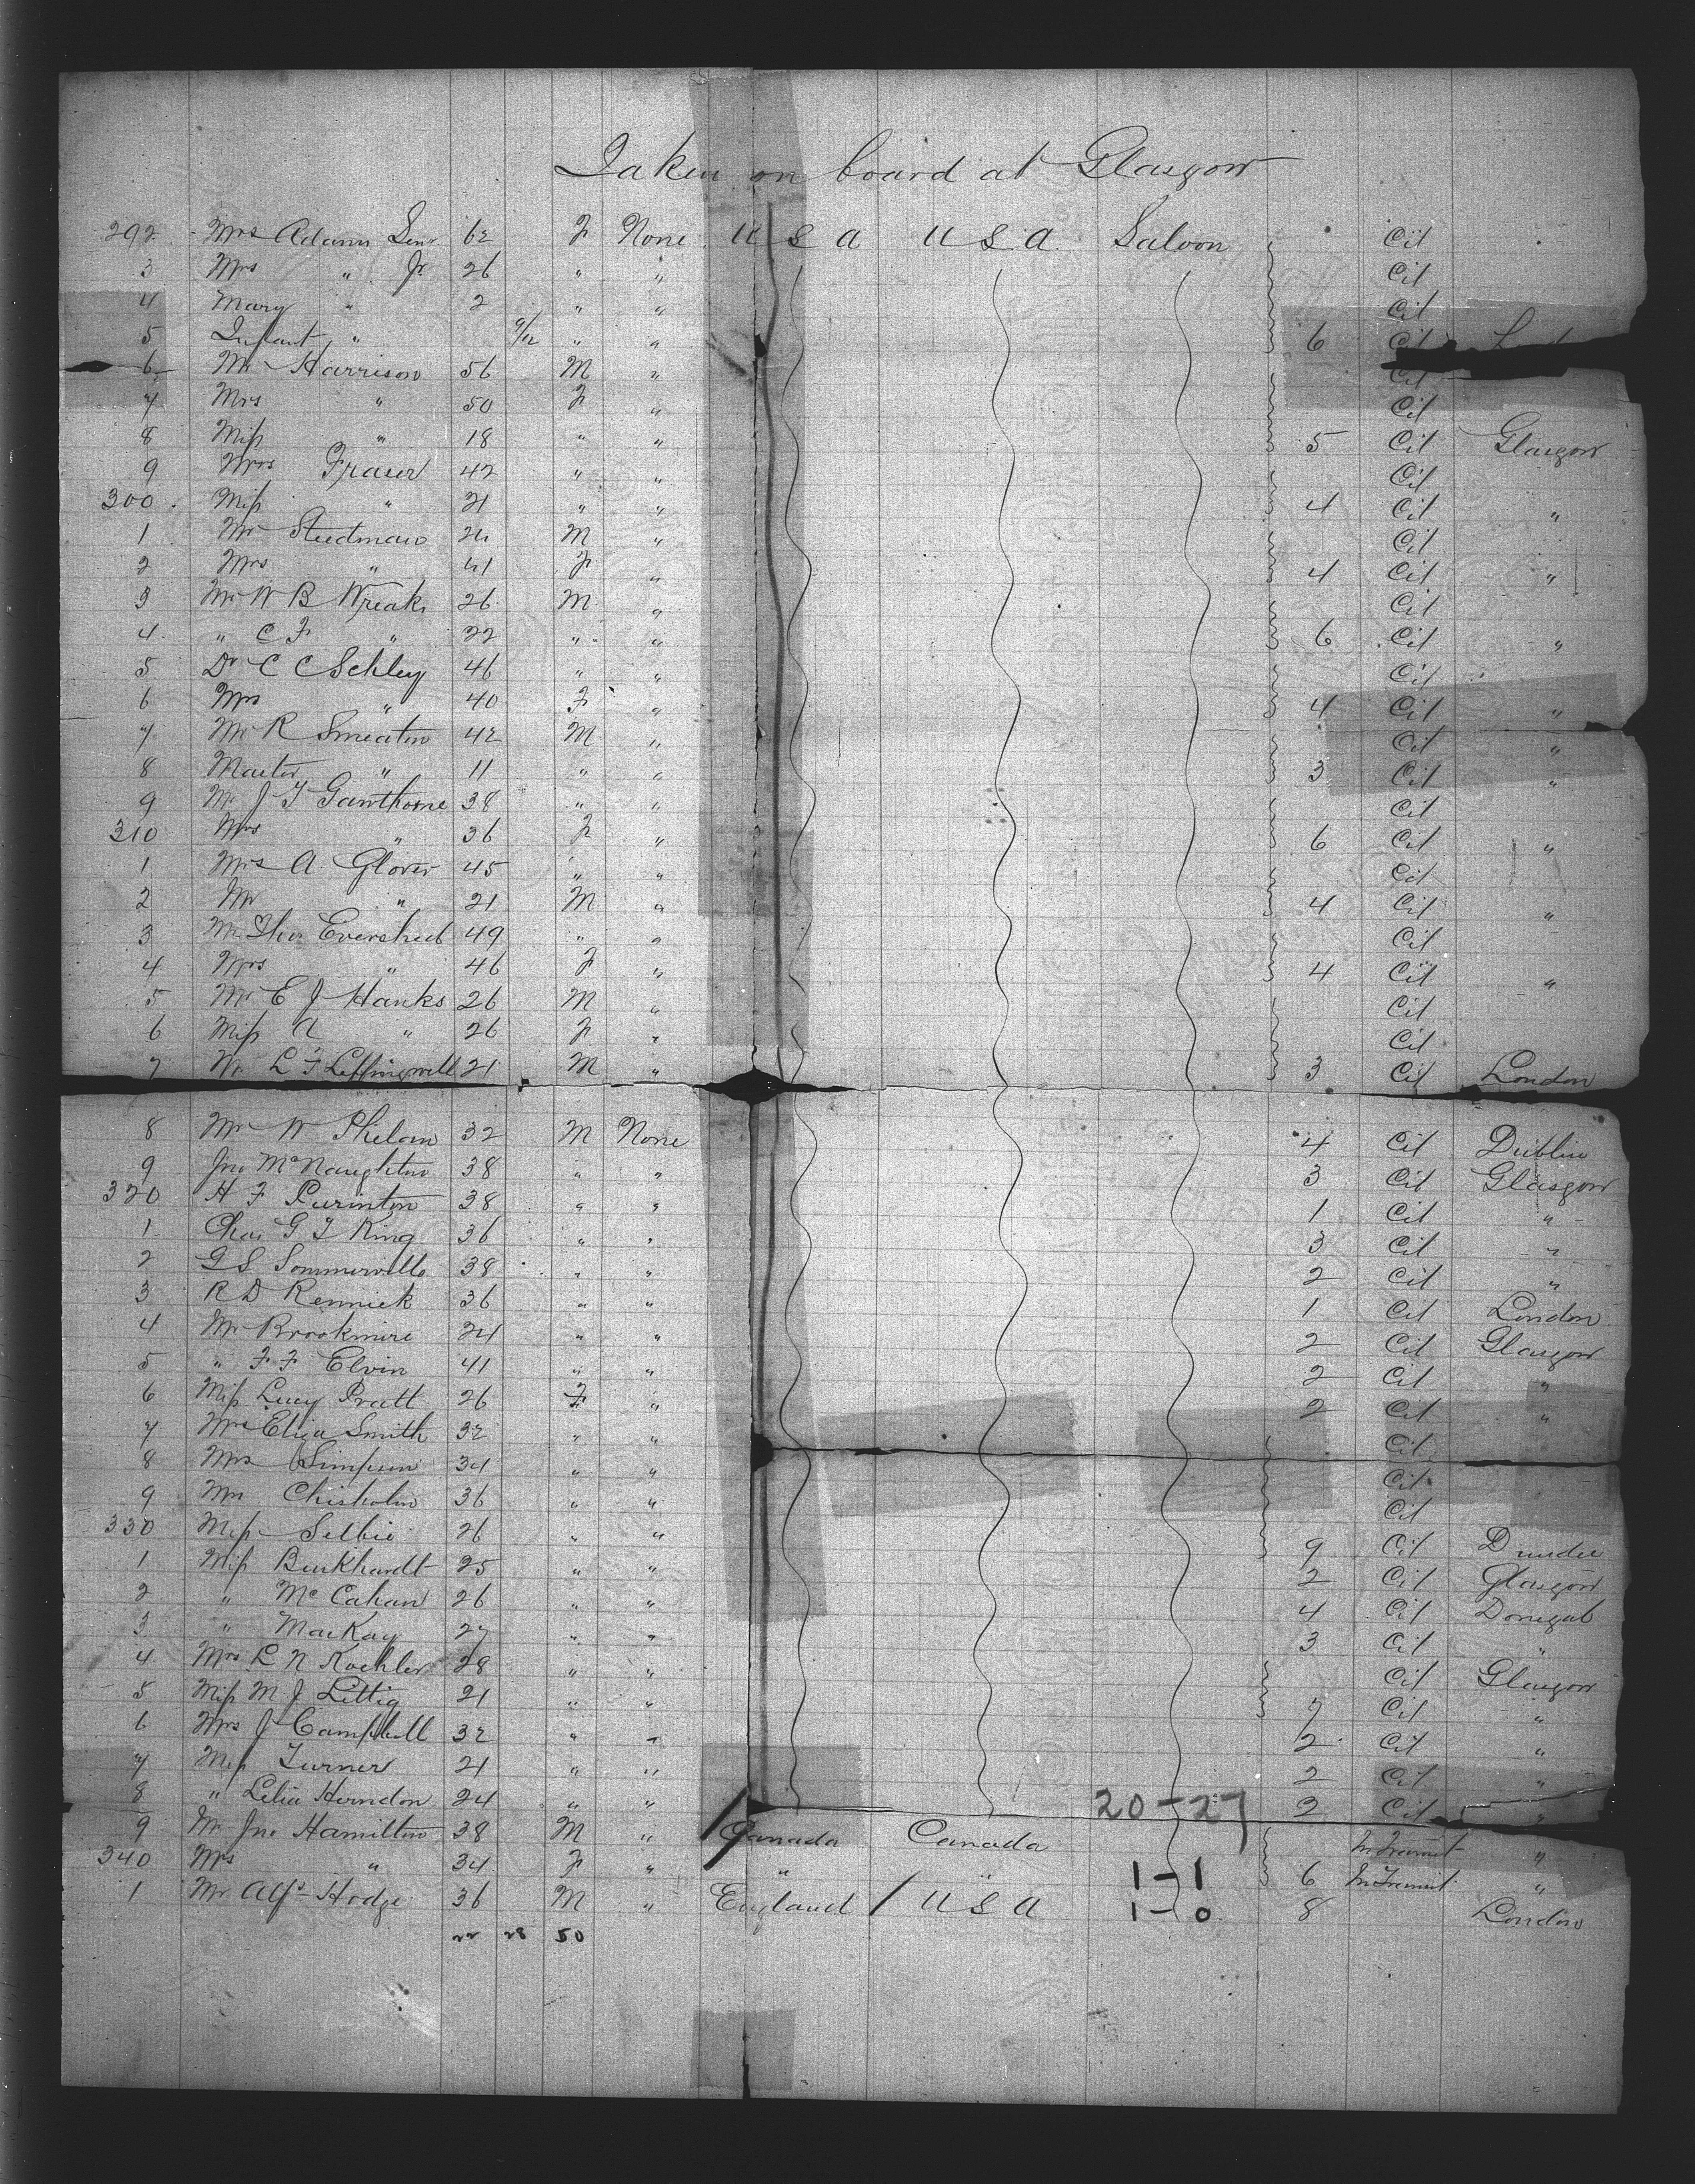 Taken on board at Glasgow
292 Mrs Adams Senr 62 F None U S A U S A Saloon Cit
3 Mrs " Jr 26 " " Cit
4 Mary " 2 " " Cit
5 Infant " 9/12 " " 6 Cit
6 Mr Harrison 56 M " Cit
7 Mrs " 50 F " Cit
8 Miss " 18 " " 5 Cit Glasgow
9 Mrs Fraser 42 " " Cit
300 Miss " 21 " " 4 Cit "
1 Mr Steedman M " Cit
2 Mrs " 41 F " 4 Cit "
3 Mr W B Wreaks 26 M " Cit
4 " C F " 22 " " 6 Cit "
5 Dr C C Schley 46 " " Cit
6 Mrs " 40 F " 4 Cit "
7 Mr R Smeaton 42 M " Cit "
8 Master " 11 " " 3 Cit "
9 Mr J T Gawthorne 38 " " Cit
310 Mrs " 36 F " 6 Cit "
1 Mrs A Glover 45 " " Cit
2 Mr " 21 M " 4 Cit "
3 Mr Thos Evershed 49 " " Cit
4 Mrs " 46 F " 4 Cit "
5 Mr E J Hanks 26 M " Cit
6 Miss A " 26 F " Cit
7 Mr L F Leffingwell 21 M " 3 Cit London
8 Mr W Phelan 32 M None 4 Cit Dublin
9 Jno McNaughton 38 " " 3 Cit Glasgow
320 H F Purinton 38 " " 1 Cit "
1 Chas G T King 36 " " 3 Cit "
2 G S Sommerville 38 " " 2 Cit "
3 R D Rennick 36 " " 1 Cit London
4 Mr Brookmire 24 " " 2 Cit Glasgow
5 " F F Elvin 41 " " 2 Cit "
6 Miss Lucy Pratt 26 F " 2 Cit "
7 Mrs Eliza Smith 32 " " Cit
8 Mrs Simpson 34 " " Cit
9 Mrs Chisholm 36 " " Cit
330 Miss Selbie 26 " " 9 Cit Dundee
1 Miss Burkhardt 25 " " 2 Cit Glasgow
2 " McCahan 26 " " 4 Cit Donegal
3 " MacKay 27 " " 3 Cit "
4 Mrs L N Koehler 28 " " Cit Glasgow
5 Miss M J Littig 21 " " 7 Cit "
6 Mrs J Campbell 32 " " 2 Cit "
7 Miss Turner 21 " " 2 Cit "
8 " Lelia Herndon 24 " " 20-27 2 Cit "
9 Mr Jno Hamilton 38 M " Canada Canada In Transit "
340 Mrs " 34 F " " " 1-1 6 In Transit "
1 Mr Alfd Hodge 36 M " England / U S A 1-0 8 London
22 28 50